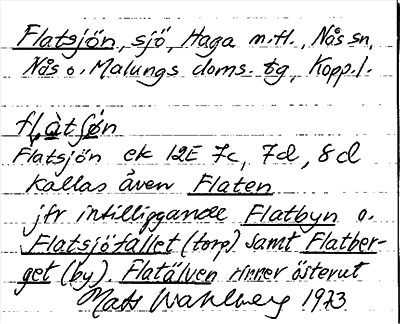 Flatsjön, sjö, Haga m.fl., Nås sn,
Nås o. Malungs doms. tg, Kopp.l.
Flatsjön ek 12E 7c, 7d, 8d
kallas även Flaten
jfr intilliggande Flatbyn o.
Flatsjöfallet (torp) samt Flatber-
get (by). Flatälven rinner österut
Mats Wahlberg 1973